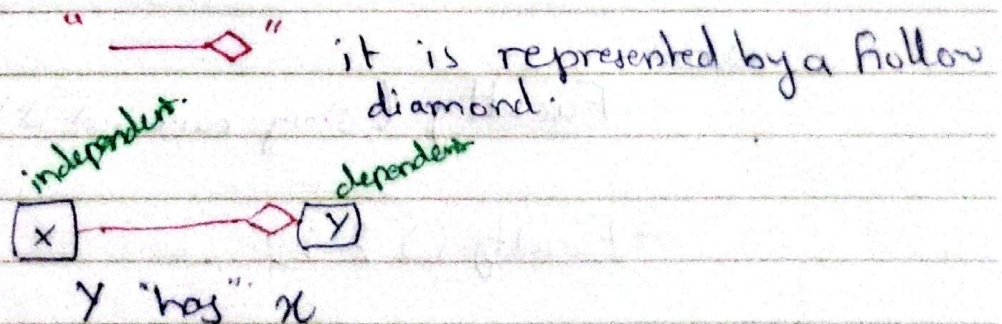 " " it is represented by a hollow
diamond.
independent. dependent
X Y
Y "has" x